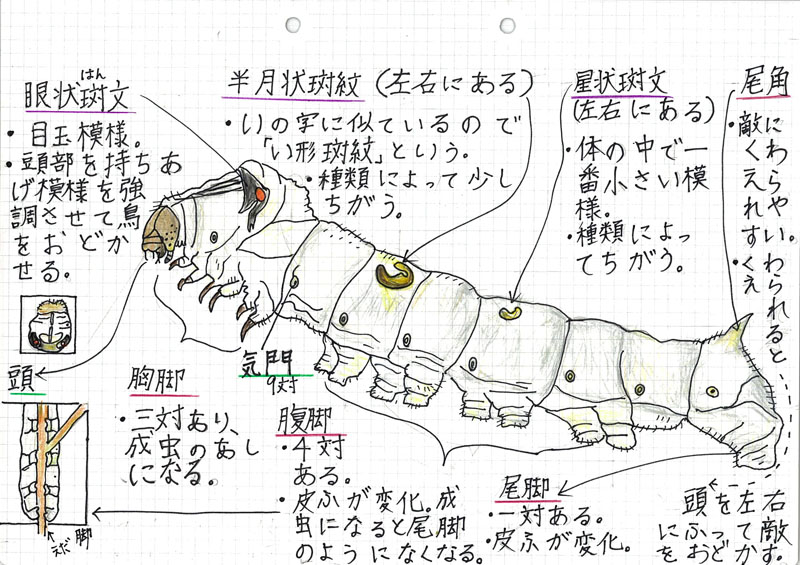 はん
眼状斑文
・目玉模様。
・頭部を持ちあ
げ模様を強
調させて鳥
をおどか
せる。
半月状斑紋(左右にある)
・いの字に似ているので
「い形斑紋」という。
・種類によって少し
ちがう。
星状斑文
(左右にある)
・体の中で一
番小さい模
様。
・種類によっ
てちがう。
尾角
・敵に
くわ
えら
れや
すい。
・くわ
えられると
頭を左右
にふって敵
をおどかす。
頭
胸脚
・三対あり、
成虫のあし
になる。
気門
9対
腹脚
・4対
ある。
・皮ふが変化。成
虫になると尾脚
のようになくなる。
尾脚
・一対ある。
・皮ふが変化。
えだ
脚